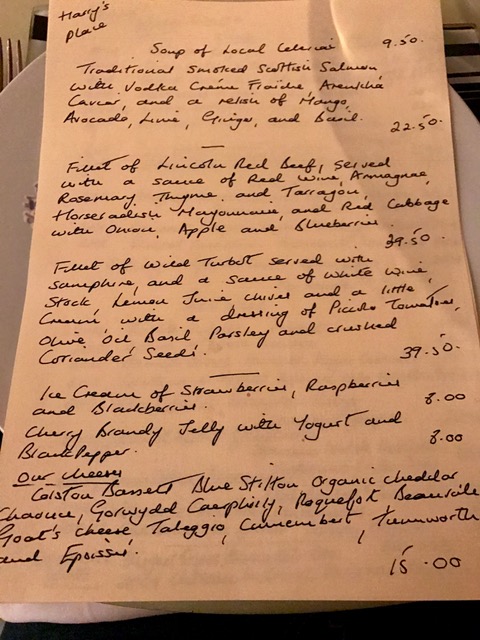 Harry's
Place
Soup of Local Celeriac 9.50.
Traditional Smoked Scottish Salmon
with Vodka Créme Fraiche, Arenkha
Caviar, and a relish of Mango,
Avocado, Lime, Ginger, and Basil.
22.50.
Fillet of Lincoln Red Beef, served
with a sauce of Red Wine, Armagnac,
Rosemary, Thyme and Tarragon,
Horseradish Mayonnaise, and Red Cabbage
with Onion, Apple and Blueberries.
39.50.
Fillet of Wild Turbot served with
samphire, and a sauce of White Wine,
Stock Lemon Juice chives and a little
Cream with a dressing of Piccolo Tomatoes,
Olive Oil Basil Parsley and crushed
Coriander Seeds.
39.50.
Ice Cream of Strawberries, Raspberries
and Blackberries. 8.00
Cherry Brandy Jelly with Yogurt and
Black Pepper. 8.00
Our cheeses
Colston Bassett Blue Stilton Organic cheddar
Chaource, Gorwydd Caerphilly, Roquefort Beauvale
Goat's cheese, Taleggio, Camembert, Tunworth
and Epoisses.
15.00